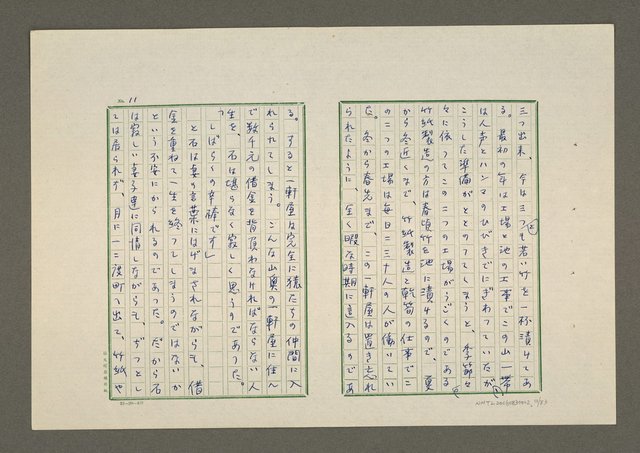 三つ出来、今は三つも若い竹を一杯漬けてあ
る。最初の年は工場と池の工事でこの山一帯
は人声とハンマのひびきでにぎわっていたが
こうした準備がととのってしまうと、季節々
々に依ってこの二つの工場がうごくのである
竹紙製造の方は春頃竹を池に漬けるので、夏
から冬近くまで、竹紙製造と乾筍の仕事でこ
の二つの工場は毎日二三十人の人が働いてい
た。冬から春先まで、この一軒屋は置き忘れ
られたように、全く暇な時期に這入るのであ
る。すると一軒屋は完全に猿たちの仲間に入
れられてしまう。こんな山奥の一軒屋に住ん
で数千元の借金を背負わなければならない人
生を、石は堪らなく寂しく思うのであった。
「しばらくの辛棒です」
と石は妻の言葉にはげまされながらも、借
金を重ねて一生を終ってしまうのではないか
という不安にかられるのであった。だから石
は寂しい妻子達に同情しながらも、ぢっとし
ては居られず、月に一二度町へ出て、竹紙や
No. 11